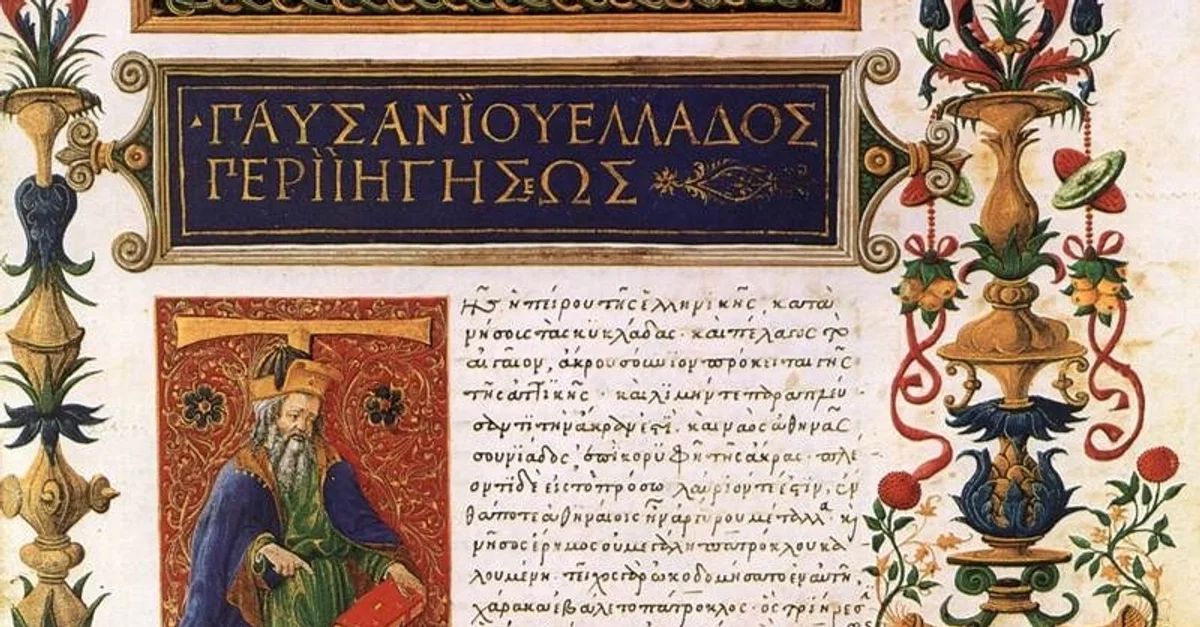 ·ΠΑΥΣΑΝΪΟΥ ΕΛΛΑΔΟΣ
ΠΕΡΙΗΓΗΣΕΩΣ
Τῆς ἠπείρου τῆς ἑλληνικῆς, κατὰ
νήσους τὰς κυκλάδας· καὶ πέλαγος τὸ
αἰγαῖον, ἄκρου σούνιον πρόκειται γῆς
τῆς ἀττικῆς· καὶ λιμήν τε παραπλεύ
σαντι τὴν ἄκραν ἐστί, καὶ ναὸς ἀθηνᾶς
σουνιάδος, ἐπὶ κορυφῇ τῆς ἄκρας· πλέ
οντι δὲ εἰς τὸ πρόσω λαύριόν τέ ἐστιν, ἔν
θά ποτε ἀθηναίοις ἦν ἀργύρου μέταλλα· καὶ
νῆσος ἔρημος οὐ μεγάλη πατρόκλου κα
λουμένη· τεῖχος γὰρ ᾠκοδομήσατο ἐν αὐτῇ,
χάρακα ἐβάλετο πάτροκλος· ὃς τριήρεσ